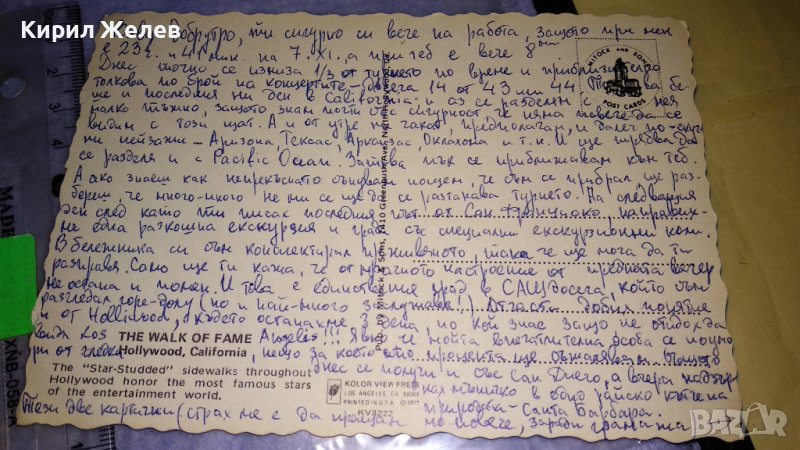 Кирил Желев
Добрутро, ти сигурно си вече на работа, защото при мен
е 23 г. и 41 мин. на 7. XI., а при теб е вече 8
Днес точно се изниза 1/3 от турнето по време и приблизително
толкова по брой на концертите - досега 14 от 43 или 44. Това бе-
ше и последния ни ден в California и аз се разделям с нея
малко тъжно, защото знам почти със сигурност, че няма повече да се
видим с този щат. А и от утре ни чакат, предполагам, и далеч по-скуч-
ни пейзажи - Аризона, Тексас, Арканзас, Оклахома и т.н. И ще трябва да
се разделя и с Pacific Ocean. Затова пък се приближавам към теб.
А ако знаеш как непрекъснато сънувам нощем, че съм се прибрал ще раз-
береш, че много-много не ми се ще да се разтакава турнето. На следващия
ден след като ти писах последния път от Сан Франциско направих-
ме една разкошна екскурзия из града със специални екскурзионни коли.
В бележника си съм конспектирал преживяното, така че ще мога да ти
разправя. Само ще ти кажа, че от мрачното настроение от предната вечер
не остана и помен. И това е единствения град в САЩ досега, който съм
разгледал горе-долу (но и най-много заслужава!). Отчасти добих понятие
и от Holliwood, където останахме 3 дена, но кой знае защо не отидох да
видя Los Angeles!!! Явно че моята впечатлителна особа се измо-
ри от гледки, нещо за което
THE WALK OF FAME
Hollywood, California
The "Star-Studded" sidewalks throughout
Hollywood honor the most famous stars
of the entertainment world.
KOLOR VIEW PRESS
LOS ANGELES CA.
PRINTED IN U.S.A.
KV8222
MITOCK AND SONS
POST CARDS
днес се получи и със Сан Диего, а вчера надзър-
нах мъничко в едно райско кътче на
природата - Санта Барбара.
Тези две картички (страх ме е да пращам по повече, заради грамажа
MADE
XNB-058-A
BAZAR